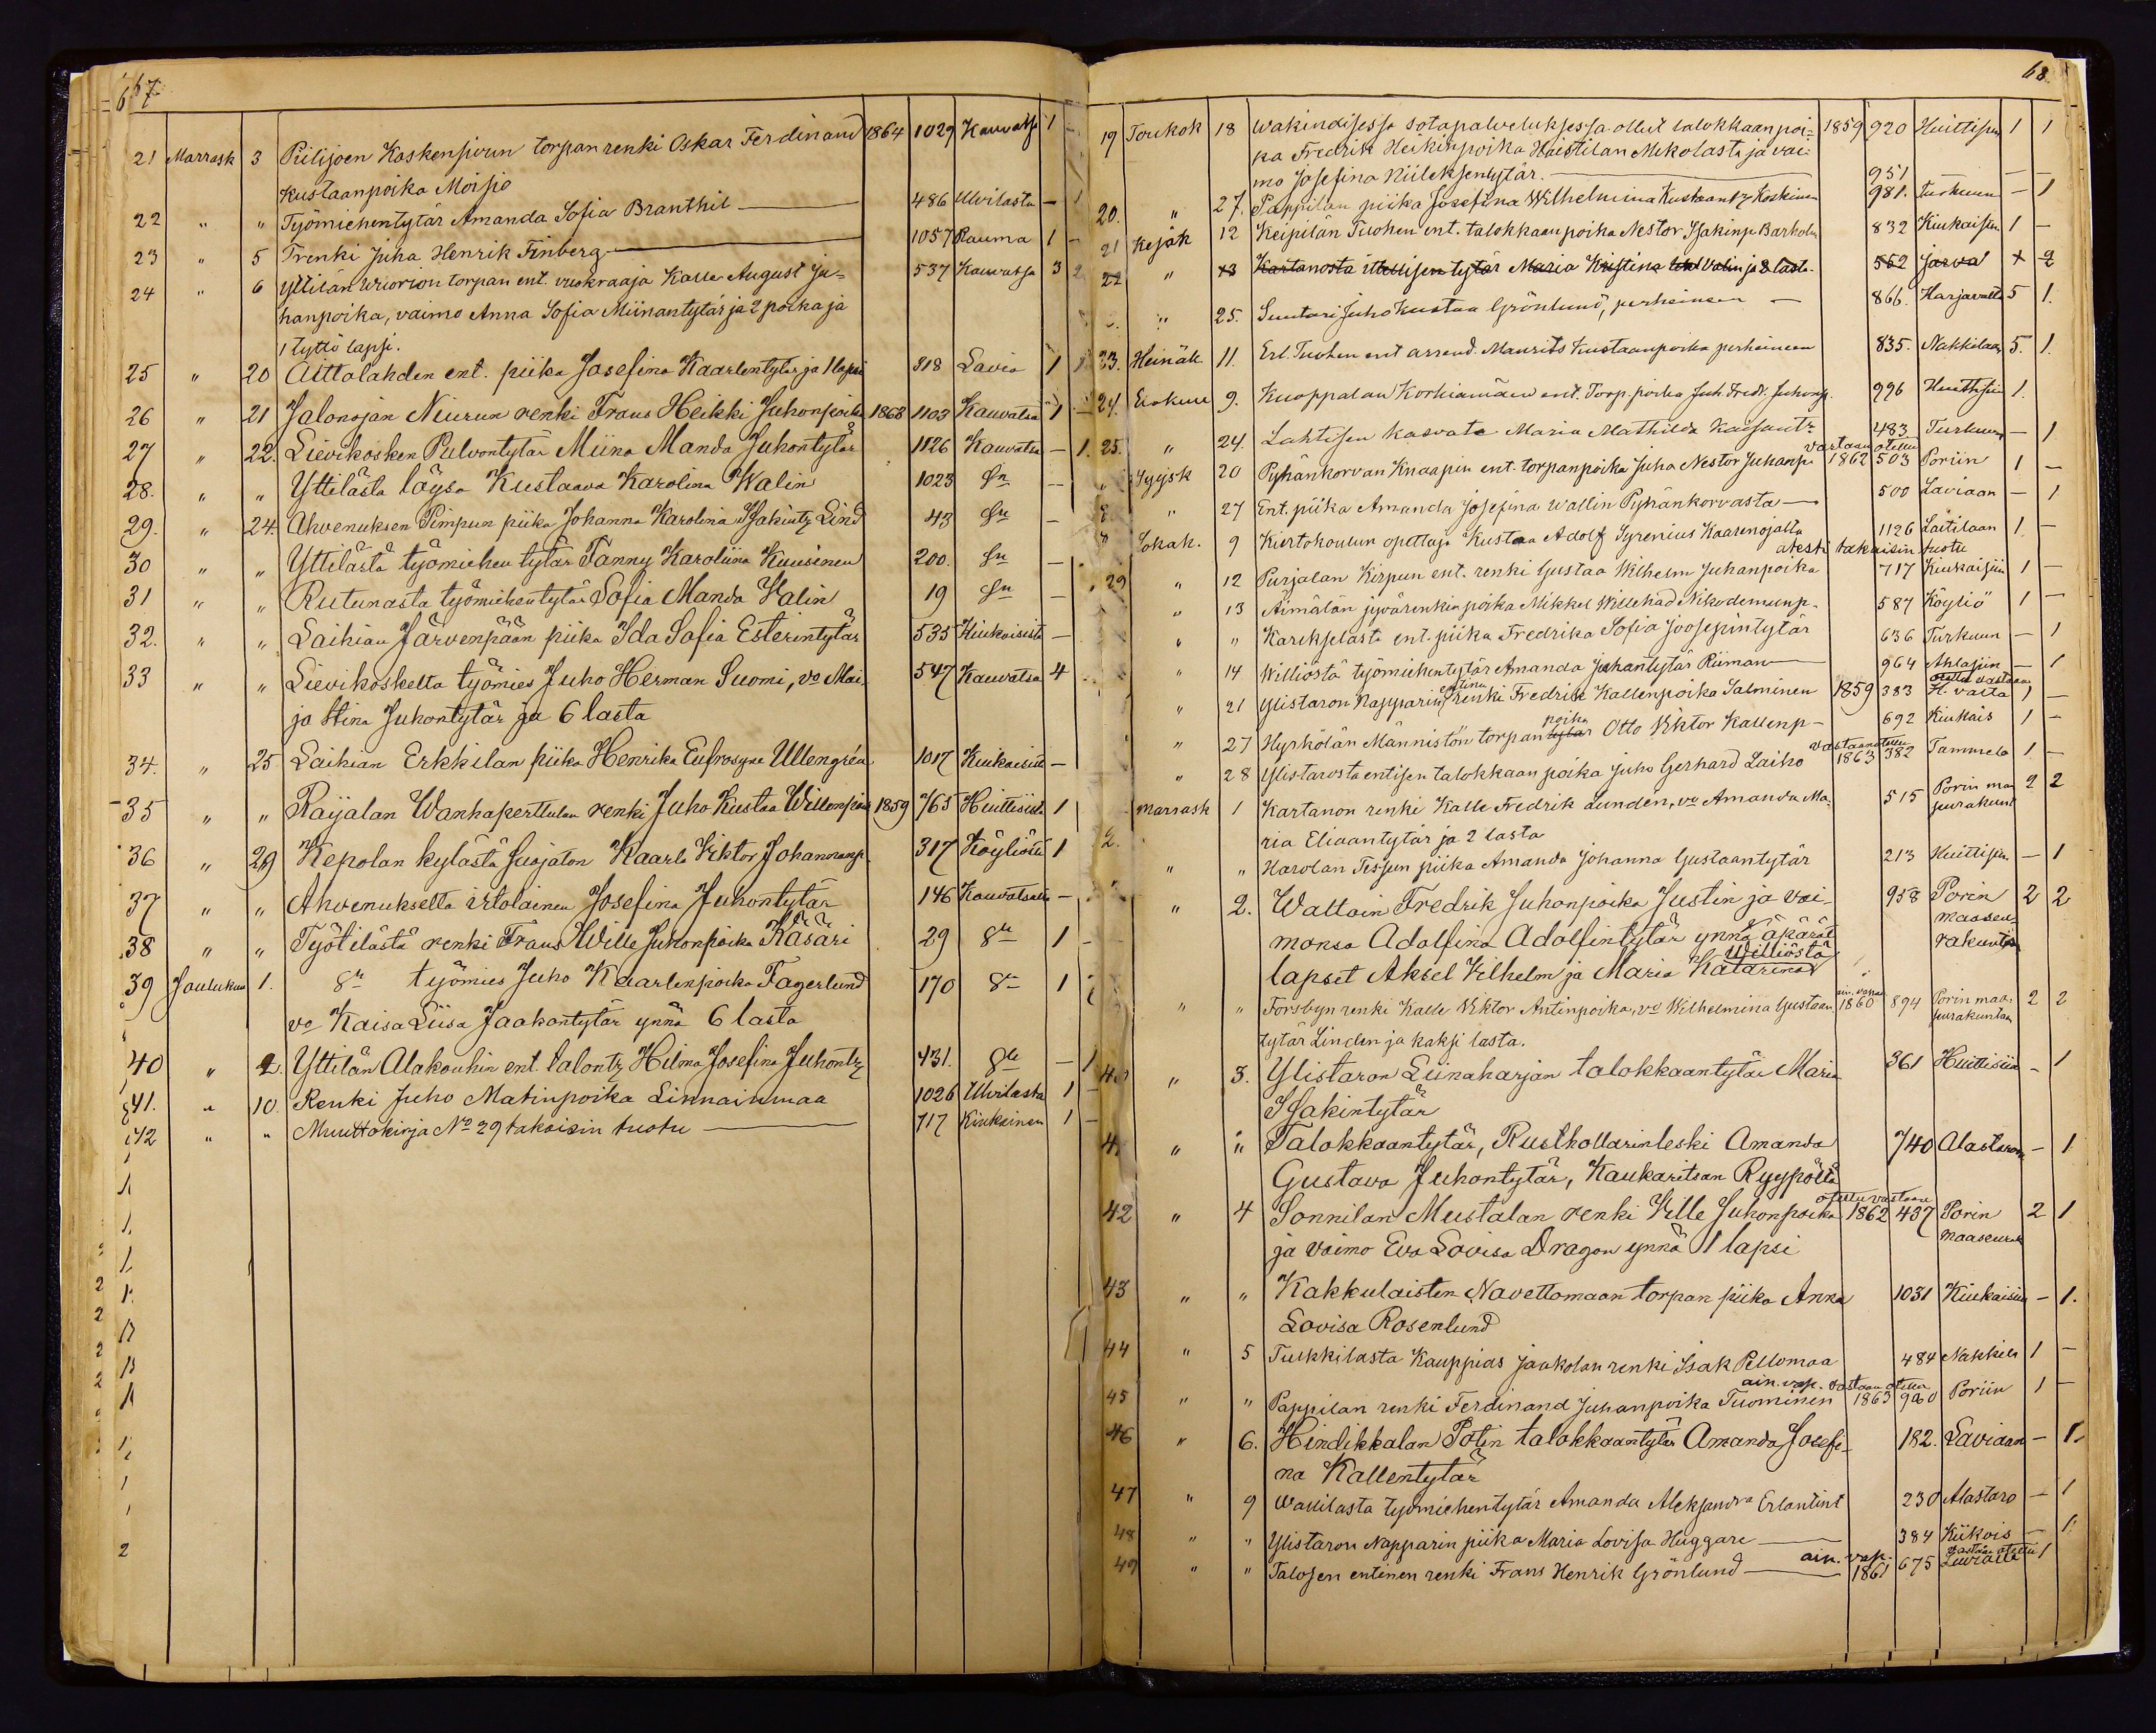 67.
21 Marrask 3 Piilijoen Koskenpirun torpan renki Oskar Ferdinand 1864 1029 Kauvatsa 1 -
Kustaanpoika Moisio
22 " " Työmiehentytär Amanda Sofia Branthil — 486 Ulvilasta - 1
23 " 5 Trenki Juha Henrik Finberg — 1057 Rauma 1 -
24 " 6 Yttilän torpan ent. vuokraaja Kalle August Ju= 537 Kauvatsa 3 2
hanpoika, vaimo Anna Sofia Miinantytär ja 2 poika ja
1 tyttö lapsi.
25 " 20 Aittalahden ent. piika Josefina Kaarlentytär ja 1 lapsi 318 Lavia 1 1
26 " 21 Jalonojan Niurun renki Frans Heikki Juhonpoika 1868 1103 Kauvatsa 1 -
27 " 22. Lievikosken Pulvontytär Miina Manda Juhontytär 1126 Kauvatsa - 1.
28. " " Yttilästä läysä Kustaava Karolina Walin 1023 Sn -
29. " 24. Ahvenuksen Pimpun piika Johanna Karolina Isakintz Lind 43 Sn -
30 " " Yttilästä työmiehen tytär Fanny Karoliina Kuusinen 200. Sn -
31 " " Rutunasta työmiehentytär Sofia Manda Valin 19 Sn -
32. " " Laihian Järvenpään piika Ida Sofia Esterintytär 535 Kiukaisista -
33 " " Lievikoskelta työmies Juho Herman Suomi, vo Mai- 547 Kauvatsa 4
ja Stina Juhontytär ja 6 lasta
34. " 25. Laihian Erkkilan piika Henrika Eufrosyne Ullengrén 1017 Kiukaisista -
35 " " Raijalan Wanhaperttulan renki Juho Kustaa Willenpoika 1859 765 Huittisista 1
36 " 29 Kepolan kylästä Suojaton Kaarlo Viktor Johannanp. 317 Köyliöstä 1
37 " " Ahvenukselta irtolainen Josefina Juhontytär 146 Kauvatsalta -
38 " " Työtilästä renki Frans Wille Juhonpoika Käsäri 29 8n 1 -
39 Joulukuu 1. 8n työmies Juho Kaarlenpoika Fagerlund 170 8n 1
vo Kaisa Liisa Jaakontytär ynnä 6 lasta
40 " 2. Yttilän Alakouhin ent. talontz Hilma Josefina Juhontz 431. 8n - 1
41. " 10. Renki Juho Matinpoika Linnainmaa 1026 Ulvilasta 1 -
42 " " Muuttokirja No 29 takaisin tuotu — 717 Kiukainen 1 -
68.
19 Toukok 18 Wakindisessa sotapalveluksessa ollut talokkaan poi= 1859 920 Huittisen 1 1
ka Fredrik Heikinpoika Haistilan Mikolasta ja vai=
mo Josefina Niileksentytär. — 951 - -
20. " 27. Pappilan piika Josefina Wilhelmina Kustaantz Koskinen 981. Turkuun - 1
21 Kesäk 12 Keipilän Tuohen ent. talokkaan poika Nestor Isakinp Barholm 832 Kiukaisten 1 -
22 " 13 Kartanosta itsellisen tytär Maria Kristina Walin ja 2 lasta. 552 1 2
" 25. Suutari Juho Kustaa Grönlund, perheineen — 866. Harjavalta 5 1.
23. Heinäk 11. Erl. Tuohen ent arrend. Maurits Kustaanpoika perheineen 835. Nakkilaan 5. 1.
24. Elokuu 9. Knoppalan Korkiamäen ent. Torp. poika Juh. Fredr. Juhonp. 996 Huittisiin 1.
25. " 24. Lahtisen kasvate Maria Mathilda Kaisantz 483 Turkuun - 1
vastaan otettu
Syysk 20 Pyhänkorvan Knaapin ent. torpanpoika Juha Nestor Juhanp. 1862 503 Poriin 1 -
" 27 Ent. piika Amanda Josefina Wallin Pyhänkorvasta — 500 Laviaan - 1
Lokak. 9 Kiertokoulun opettaja Kustaa Adolf Syrenius Kaarenojalta 1126 Laitilaan 1 -
atesti takaisin tuotu
29 " 12 Purjalan Kirpun ent. renki Gustaa Wilhelm Juhanpoika 717 Kiukaisiin 1 -
" 13 Äimälän jyvärenkin poika Mikkel Willehad Nikodemunp. 587 Köyliö 1 -
" " Karekselasta ent. piika Fredrika Sofia Joosepintytär 636 Turkuun - 1
" 14 Williöstä työmiehentytär Amanda Juhantytär Riiman — 964 Ahlaisiin - 1
otettu vastaan
" 21 Ylistaron Napparin entinen renki Fredrik Kallenpoika Salminen 1859 383 H. valta 1 -
" 27 Hyrkölän Männistön torpan tytär poika Otto Viktor Kallenp- 692 Kiukais 1 -
vastaanotettu
" 28 Ylistarosta entisen talokkaan poika Juho Gerhard Laiho 1863 382 Tammela 1 -
Marrask 1 Kartanon renki Kalle Fredrik Lunden, vo Amanda Ma- 515 Porin maa seurakunt 2 2
ria Eliaantytär ja 2 lasta
" " Karolan Tessun piika Amanda Johanna Gustaantytär 213 Huittisiin - 1
" 2. Wattain Fredrik Juhonpoika Justin ja vai- 958 Porin 2 2
monsa Adolfina Adolfintytär ynnä äpärät maaseu-
lapset Aksel Vilhelm ja Maria Katarina Williöstä rakuntan
" " Forsbyn renki Kalle Viktor Antinpoika, vo Wilhelmina Gustaan ain. vapaa 1860 894 Porin maa= seurakuntaan 2 2
tytär Linden ja kaksi lasta.
" 3. Ylistaron Liinaharjan talokkaantytär Maria 361 Huittisiin - 1
Isakintytär
" " Talokkaantytär, Rusthollarinleski Amanda 740 Alastaron - 1
Gustava Juhontytär, Kaukaritsan Ryypöltä
otettu vastaan
42 " 4 Sonnilan Mustalan renki Ville Juhonpoika 1862 437 Porin 2 1
ja vaimo Eva Lovisa Dragon ynnä 1 lapsi maaseurak
43 " " Kakkulaisten Navettomaan torpan piika Anna 1031 Kiukaisiin - 1.
Lovisa Rosenlund
44 " 5 Tulkkilasta Kauppias Jaakolan renki Isak Peltomaa 484 Nakkila 1 -
ain. vap. vastaan otettu
45 " " Pappilan renki Ferdinand Juhanpoika Tuominen 1863 960 Poriin 1 -
46 " 6. Hindikkalan Potin talokkaantytär Amanda Josefi- 182. Laviaan - 1.
na Kallentytär
47 " 9 Wallilasta työmiehentytär Amanda Aleksandra Erlantint 230 Alastaro - 1
48 " " Ylistaron Napparin piika Maria Lovisa Huggare — 384 Kiikois - 1.
vastaan otettu
49 " " Talosen entinen renki Frans Henrik Grönlund — ain. vap. 1861 675 Luvialta 1